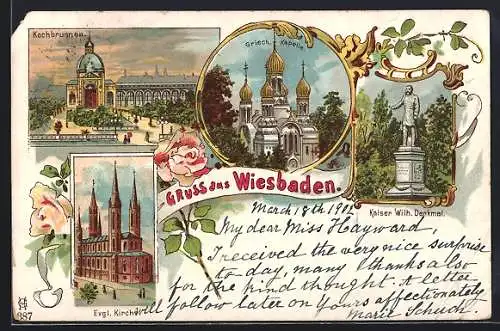 Kochbrunnen.
Griech. Kapelle
Kaiser Wilh. Denkmal.
GRUSS aus WIESBADEN.
Evgl. Kirche
387
March 18th 1902
My dear Miss Hayward,
I received the very nice surprise
to day, many thanks also
for the kind thought. A letter
will follow later on Yours affectionately
Marie Schuch